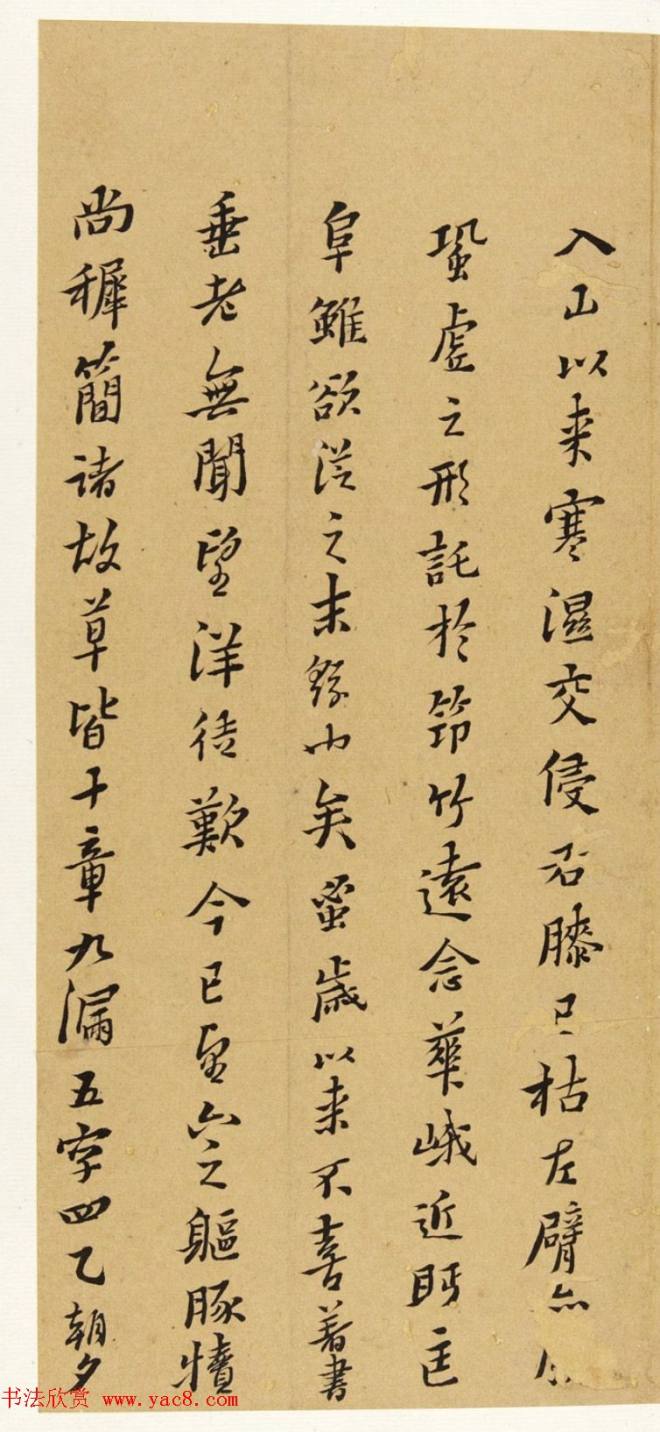 入山以来寒濕交侵右膝已枯左臂亦
蛩虛之形託於筇竹遠念華峨近眄匡
阜雖欲從之末繇也矣蚤歲以来不喜著書
垂老無聞望洋徒歎今已望六之軀豚犢
尚穉簡諸故草皆十章九漏五字四乙朝夕
书法欣赏 www.yac8.com